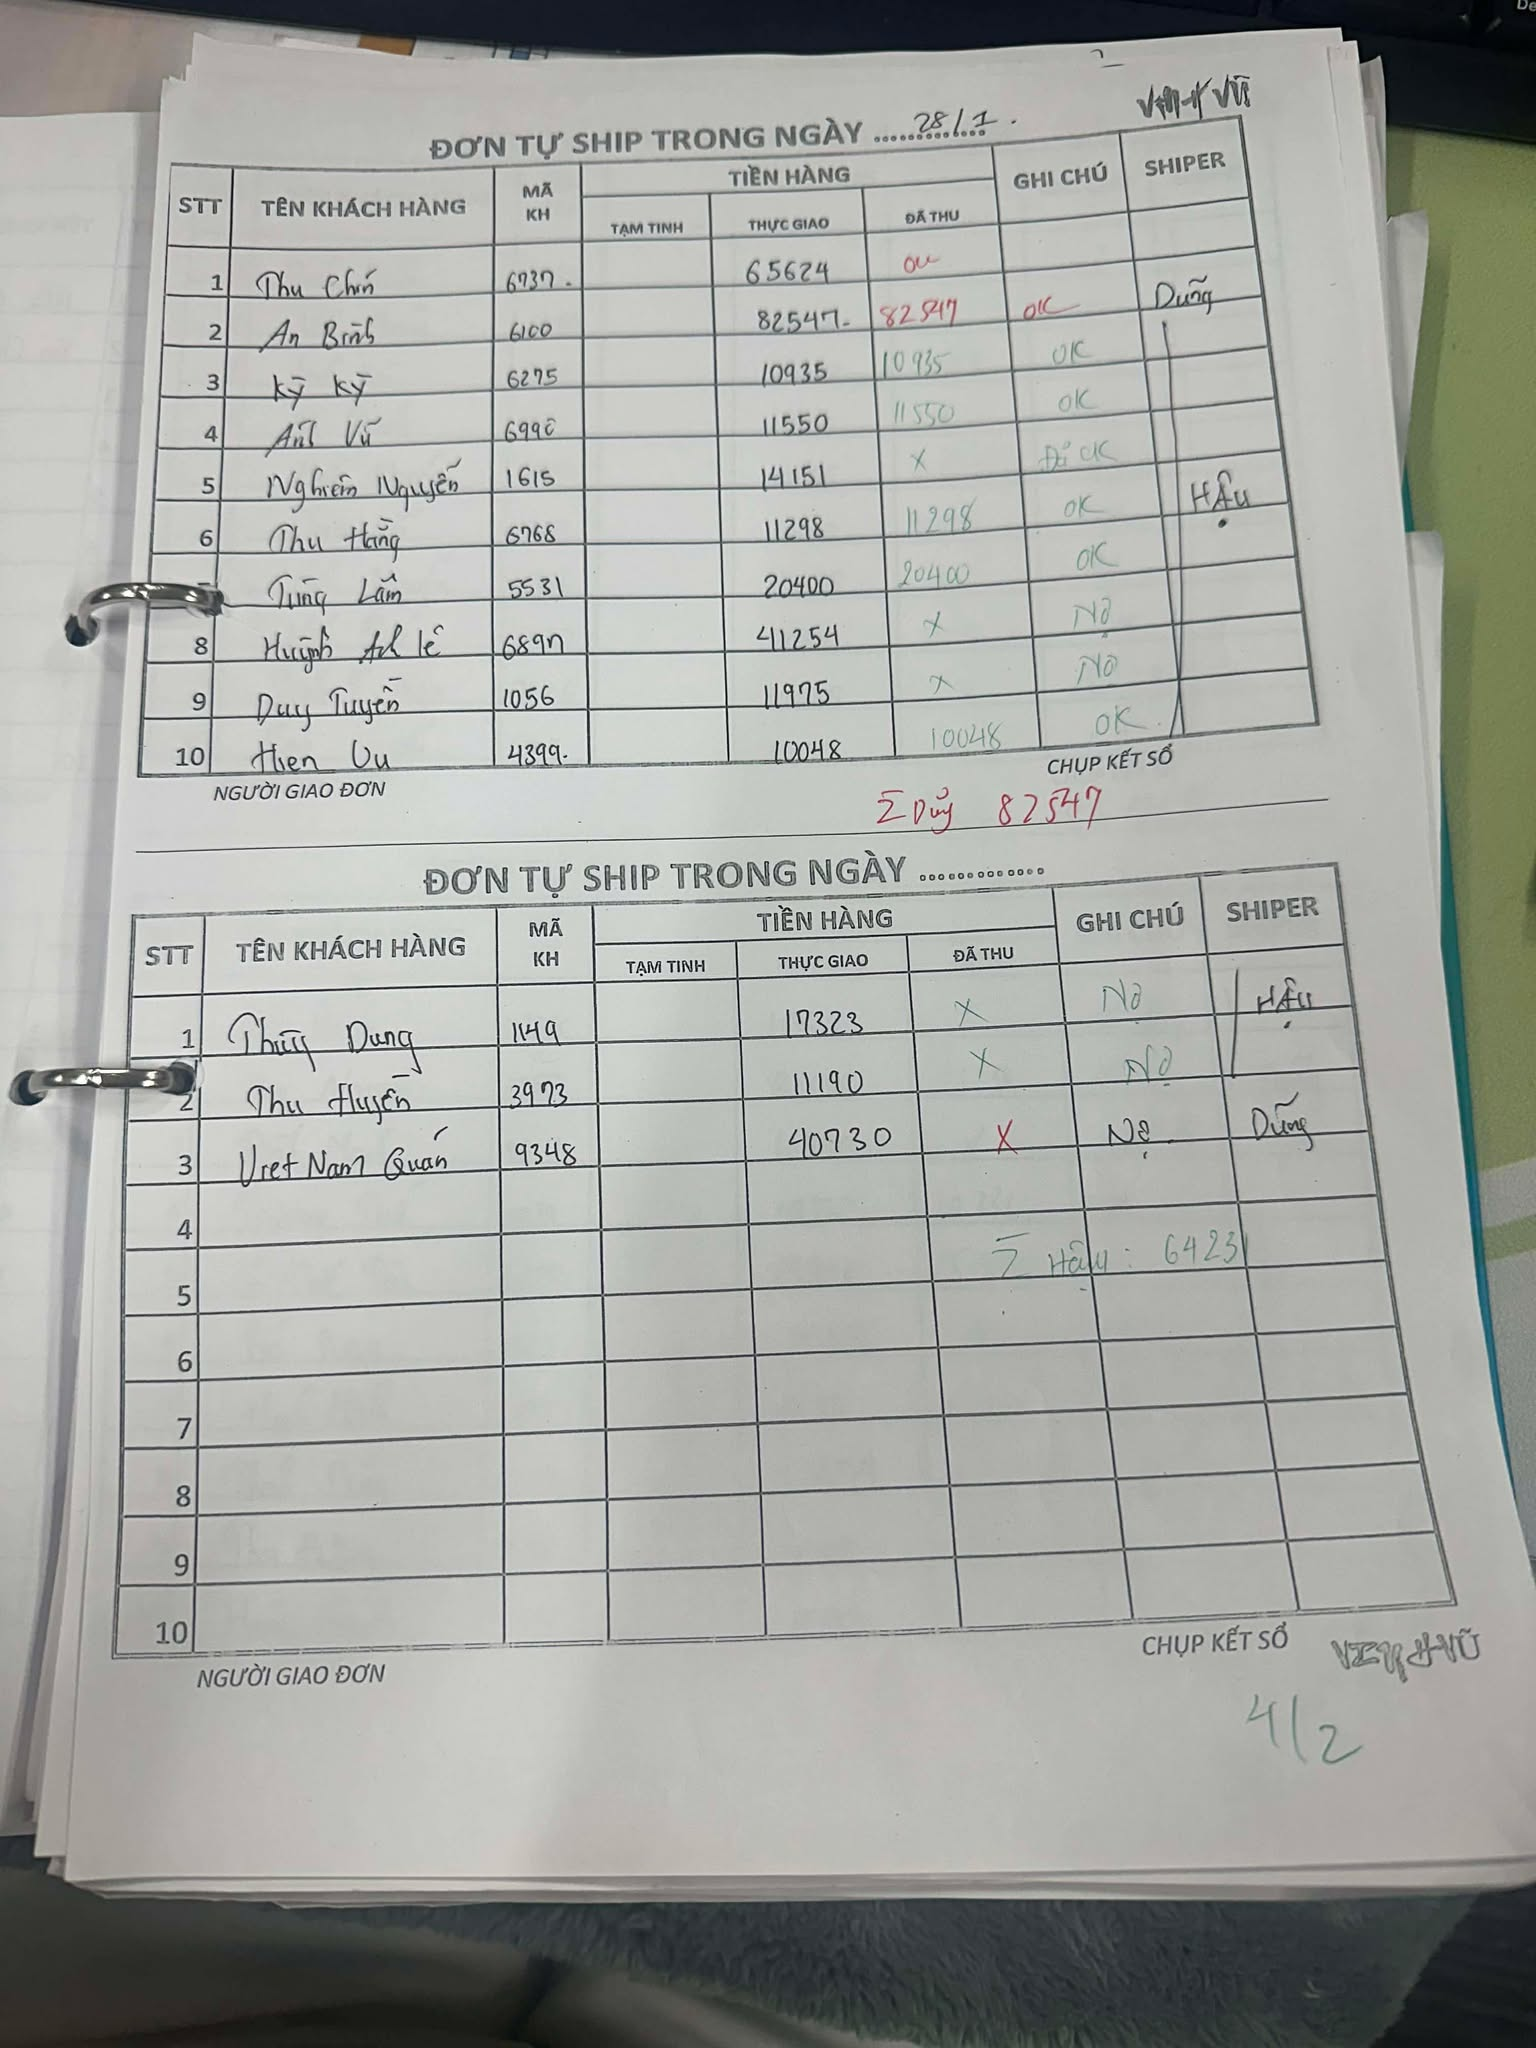 ĐƠN TỰ SHIP TRONG NGÀY ............. 28/1.
STT TÊN KHÁCH HÀNG MÃ KH TIỀN HÀNG GHI CHÚ SHIPER
TẠM TINH THỰC GIAO ĐÃ THU
1 Thu Chín 6737. 65624
2 An Bình 6100 82547. 82547 OK Dũng
3 Kỳ Kỳ 6275 10935 10935 OK
4 Anh Vũ 11550 11550 OK
5 Nghiêm Nguyễn 1615 14151 X Đã CK
6 Thu Hằng 6768 11298 11298 OK Hậu
Tùng Lâm 5531 20400 20400 OK
8 Huỳnh lê 6897 41254 X Nợ
9 Duy Tuyền 1056 11975 X Nợ
10 Hien Vu 4399. 10048 10048 OK
NGƯỜI GIAO ĐƠN CHỤP KẾT SỔ
Σ Dũng 82547
ĐƠN TỰ SHIP TRONG NGÀY .............
STT TÊN KHÁCH HÀNG MÃ KH TIỀN HÀNG GHI CHÚ SHIPER
TẠM TINH THỰC GIAO ĐÃ THU
1 Thùy Dung 1149 17323 X Nợ Hậu
2 Thu Huyền 3973 11190 X Nợ
3 Viet Nam Quán 9348 40730 X Nợ Dũng
4
5 Σ Hậu: 64231
6
7
8
9
10
NGƯỜI GIAO ĐƠN CHỤP KẾT SỔ
4/2